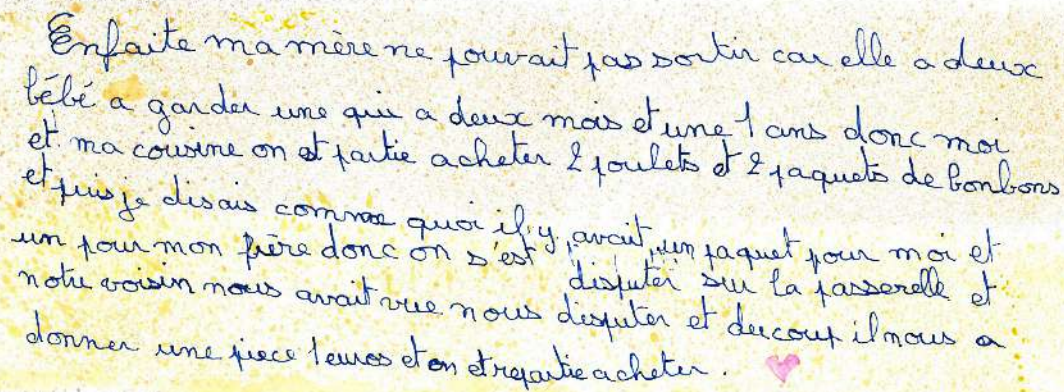 Enfaite ma mère ne pouvait pas sortir car elle a deux
bébé a garder une qui a deux mois et une 1 ans donc moi
et ma cousine on et partie acheter 2 poulets et 2 paquets de bonbons
et puis je disais comme quoi il y avait un paquet pour moi et
un pour mon frère donc on s'est disputer sur la passerelle et
notre voisin nous avait vue nous disputer et ducoup il nous a
donner une piece 1 euros et on et repartie acheter.